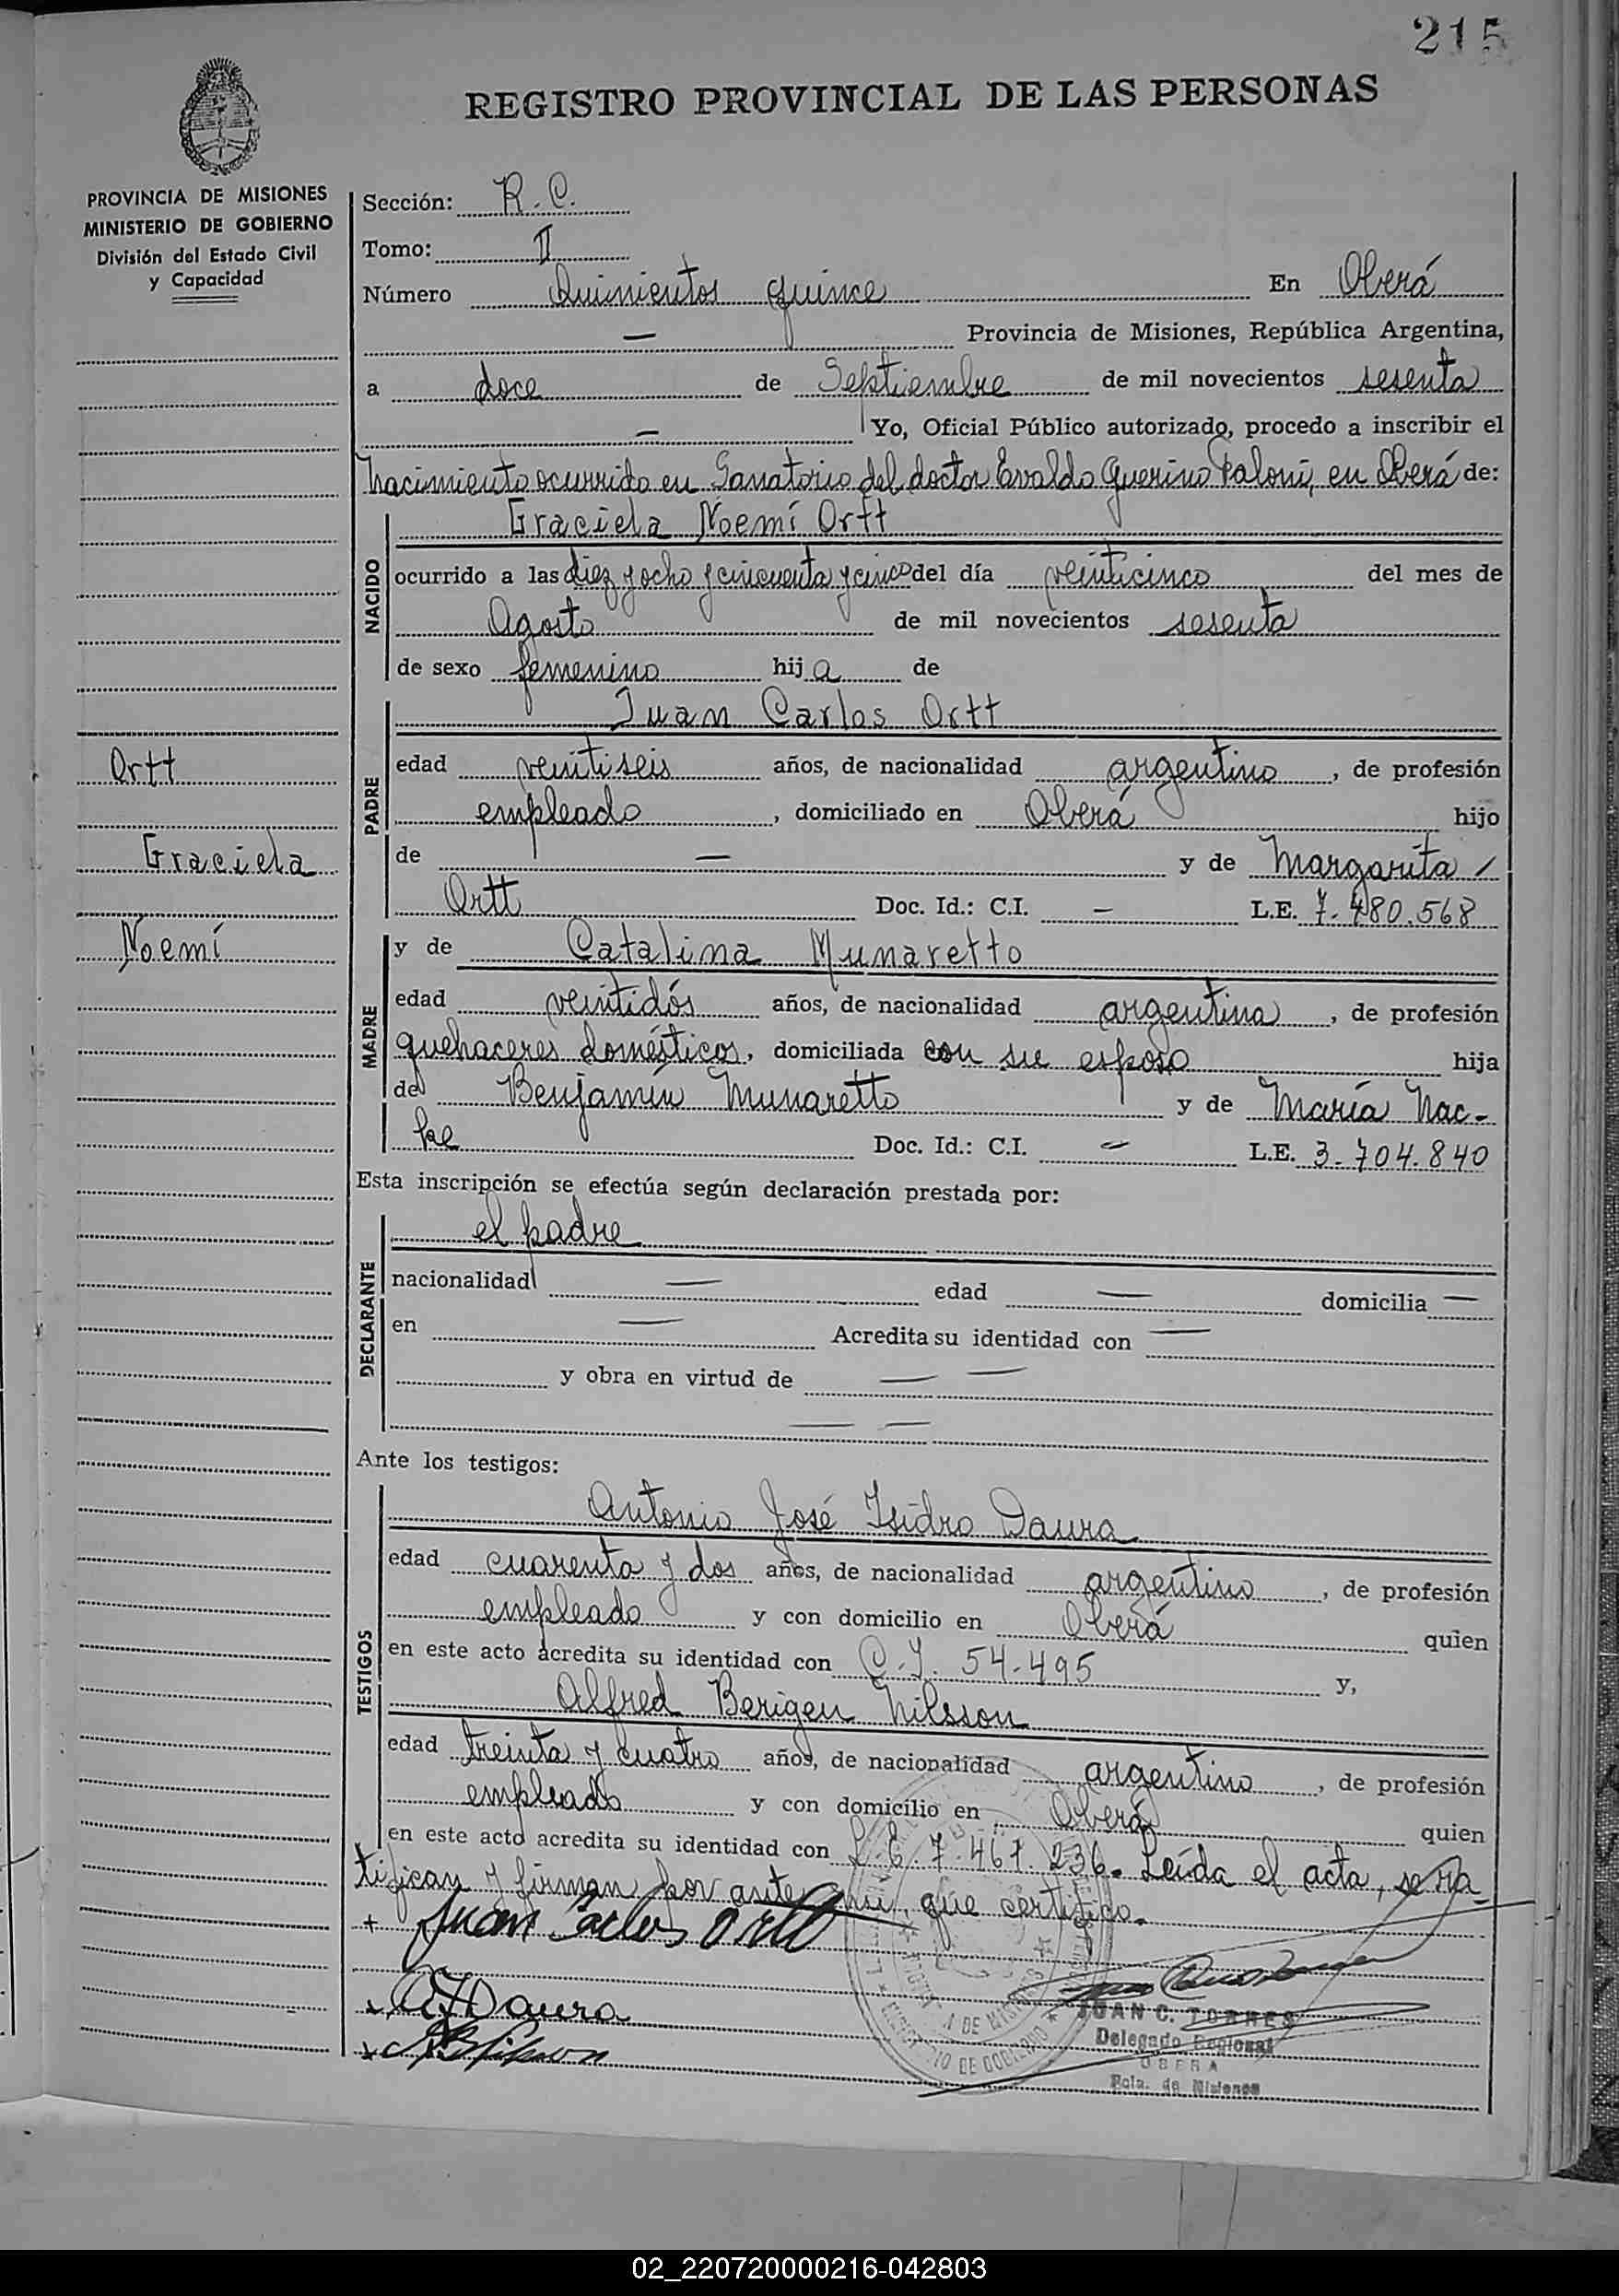 215
REGISTRO PROVINCIAL DE LAS PERSONAS
PROVINCIA DE MISIONES
MINISTERIO DE GOBIERNO
División del Estado Civil
y Capacidad
Sección: R. C.
Tomo: II
Número Quinientos quince En Oberá
— Provincia de Misiones, República Argentina,
a doce de Septiembre de mil novecientos sesenta
— Yo, Oficial Público autorizado, procedo a inscribir el
nacimiento ocurrido en Sanatorio del doctor Evaldo Querino Paloni, en Oberá de:
NACIDO
Graciela Noemí Ortt
ocurrido a las diez y ocho y cincuenta y cinco del día veinticinco del mes de
Agosto de mil novecientos sesenta
de sexo femenino hija de
PADRE
Juan Carlos Ortt
Ortt
edad veintiseis años, de nacionalidad argentino, de profesión
empleado, domiciliado en Oberá hijo
Graciela
de — y de Margarita /
Ortt Doc. Id.: C.I. — L.E. 7.480.568
Noemí
MADRE
y de Catalina Munaretto
edad veintidós años, de nacionalidad argentina, de profesión
quehaceres domésticos, domiciliada con su esposo hija
de Benjamín Munaretto y de María Nac-
ke Doc. Id.: C.I. — L.E. 3.704.840
Esta inscripción se efectúa según declaración prestada por:
DECLARANTE
el padre
nacionalidad — edad — domicilia —
en — Acredita su identidad con —
y obra en virtud de — —
— —
Ante los testigos:
TESTIGOS
Antonio José Isidro Daura
edad cuarenta y dos años, de nacionalidad argentino, de profesión
empleado y con domicilio en Oberá quien
en este acto acredita su identidad con C.I. 54.495 y,
Alfred Berigen Nilsson
edad treinta y cuatro años, de nacionalidad argentino, de profesión
empleado y con domicilio en Oberá quien
en este acto acredita su identidad con L.E. 7.467.236. Leída el acta, se ra-
tifican y firman por ante mi, que certifico.
+ Juan Carlos Ortt
JUAN C. TORRES
Delegado Regional
OBERA
Pcia. de Misiones
02_220720000216-042803